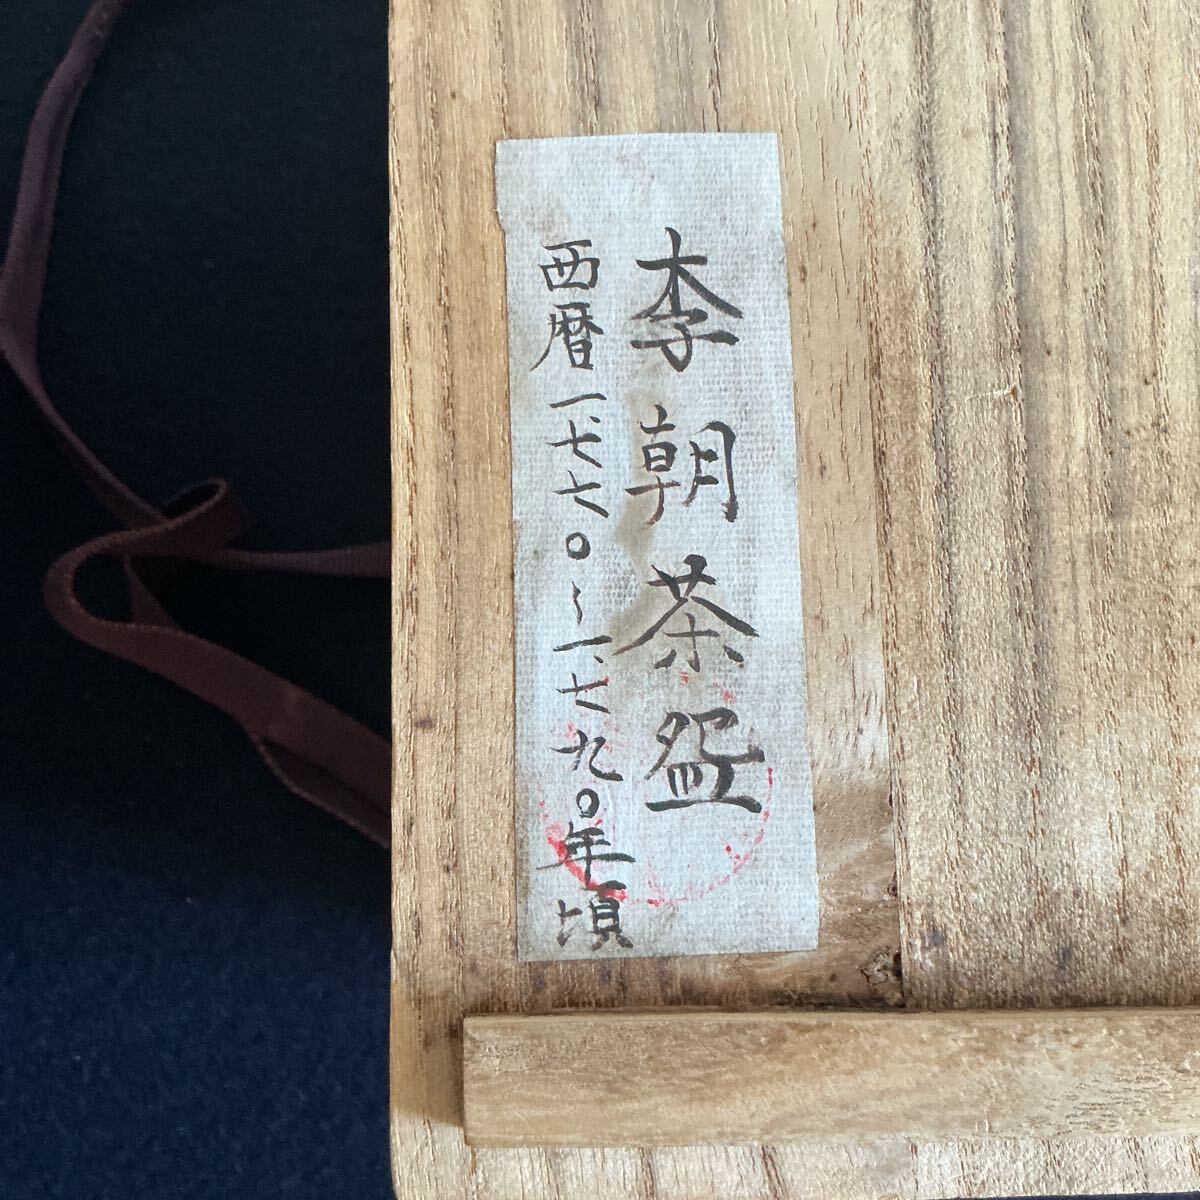 李朝茶盌
西暦一、七七〇～一、七九〇年頃